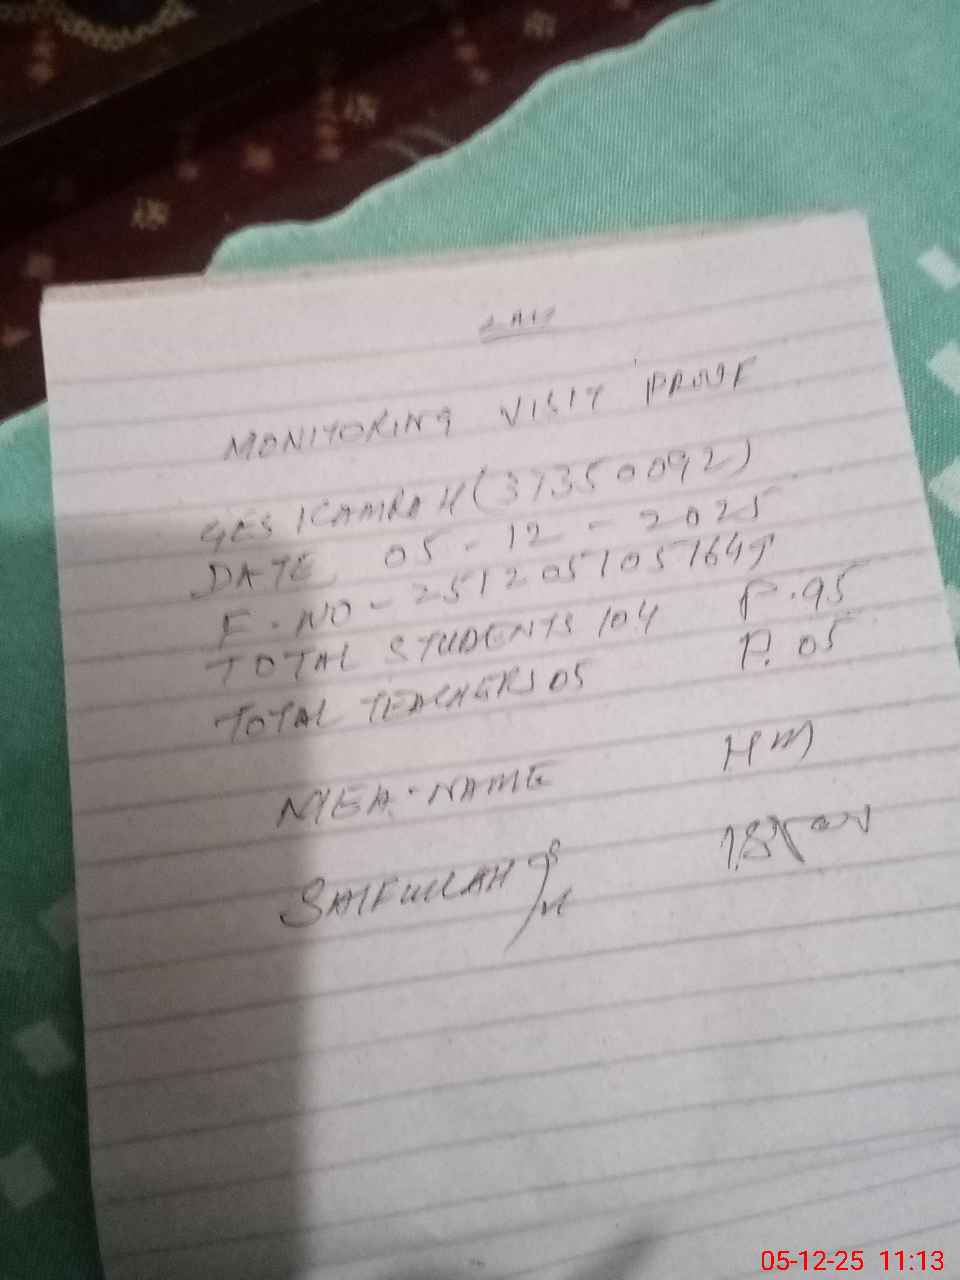 MONITORING VISIT PROUF
GES KAMRAH (37350092)
DATE 05-12-2025
F.NO-
TOTAL STUDENTS 104 P.95
TOTAL TEACHERS 05 P.05
NAME HM
SAIFULLAH
05-12-25 11:13